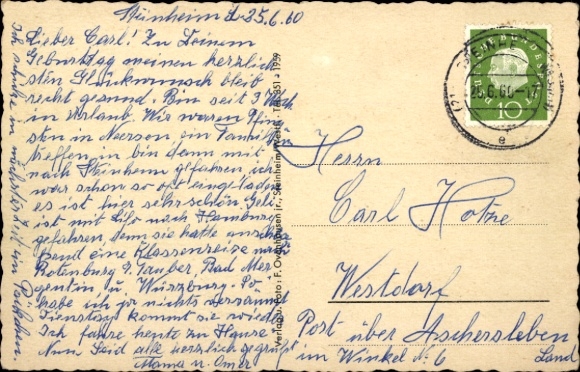 Steinheim d. 25.6.60
Lieber Carl! Zu Deinem
Geburtstag meinen herzlich
sten Glückwunsch bleib
recht gesund. Bin seit 3 Woch
in Urlaub. Wir waren Pfing
sten in Neersen ein Familien
treffen in bin denn mit
nach Steinheim gefahren ich
war schon so oft eingeladen
es ist hier sehr schön.
ist mit nach Hamburg
gefahren, denn sie hatte anschlie
ßend eine Klassenreise nach
Rotenburg o. Tauber, Bad Mer
gentin u. Würzburg. So
habe ich ja nichts versäumt
Dienstag kommt sie wieder
Ich fahre heute zu Hause
Nun Seid alle herzlich gegrüßt
Mama u. Omer
Ich schicke im nächsten ein Päckchen.
Verlag u. Foto: F. Ovenhausen jr., Steinheim/Westf.
1959
DEUTSCHE BUNDESPOST
10
STEINHEIM
25.6.60-17
e
Herrn
Carl Hotze
Westdorf
Post über Aschersleben
im Winkel No 6 Land